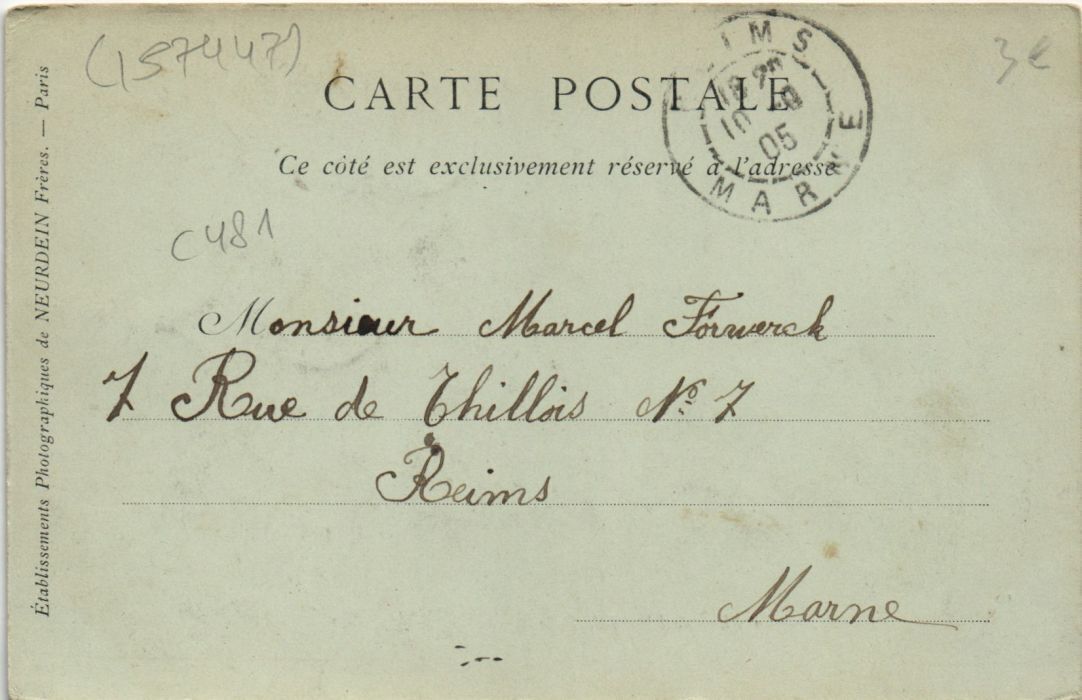 (157447)
3€
CARTE POSTALE
Ce côté est exclusivement réservé à l'adresse
IMS
10
05
MARNE
C481
Monsieur Marcel Forwerck
7 Rue de Thillois Nº 7
Reims
Marne
Établissements Photographiques de NEURDEIN Frères. — Paris